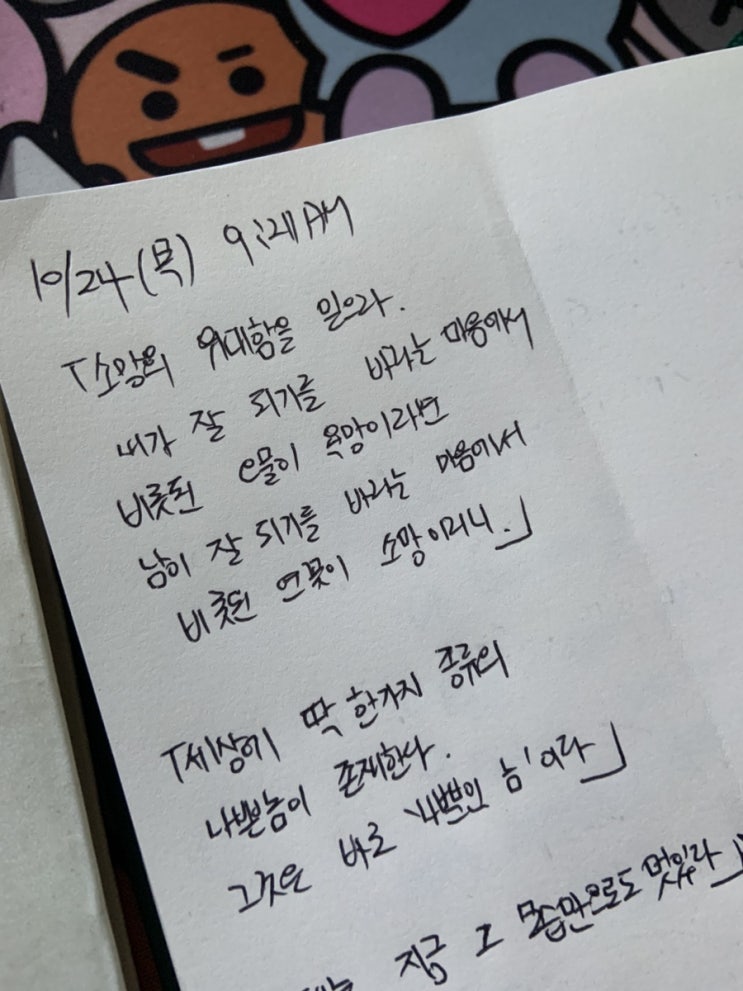 10/24(목) 9:28AM
「소망의 위대함을 믿으라.
내가 잘 되기를 바라는 마음에서
비롯된 오물이 욕망이라면
남이 잘 되기를 바라는 마음에서
비롯된 연꽃이 소망이려니.」
「세상에 딱 한가지 종류의
나쁜놈이 존재한다.
그것은 바로 '나뿐인 놈'이다」
지금 그 모습만으로도 멋있다」